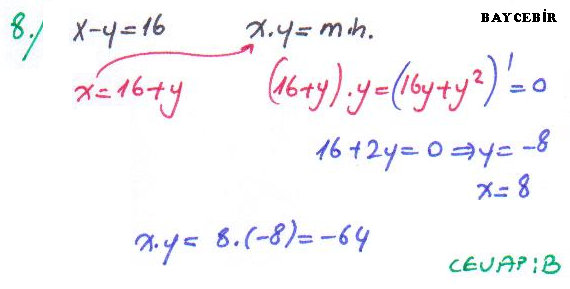 BAYCEBİR
8.) x-y=16 x.y=m.h.
x=16+y (16+y).y=(16y+y²)'=0
16+2y=0⇒y=-8
x=8
x.y= 8.(-8)=-64
CEVAP:B